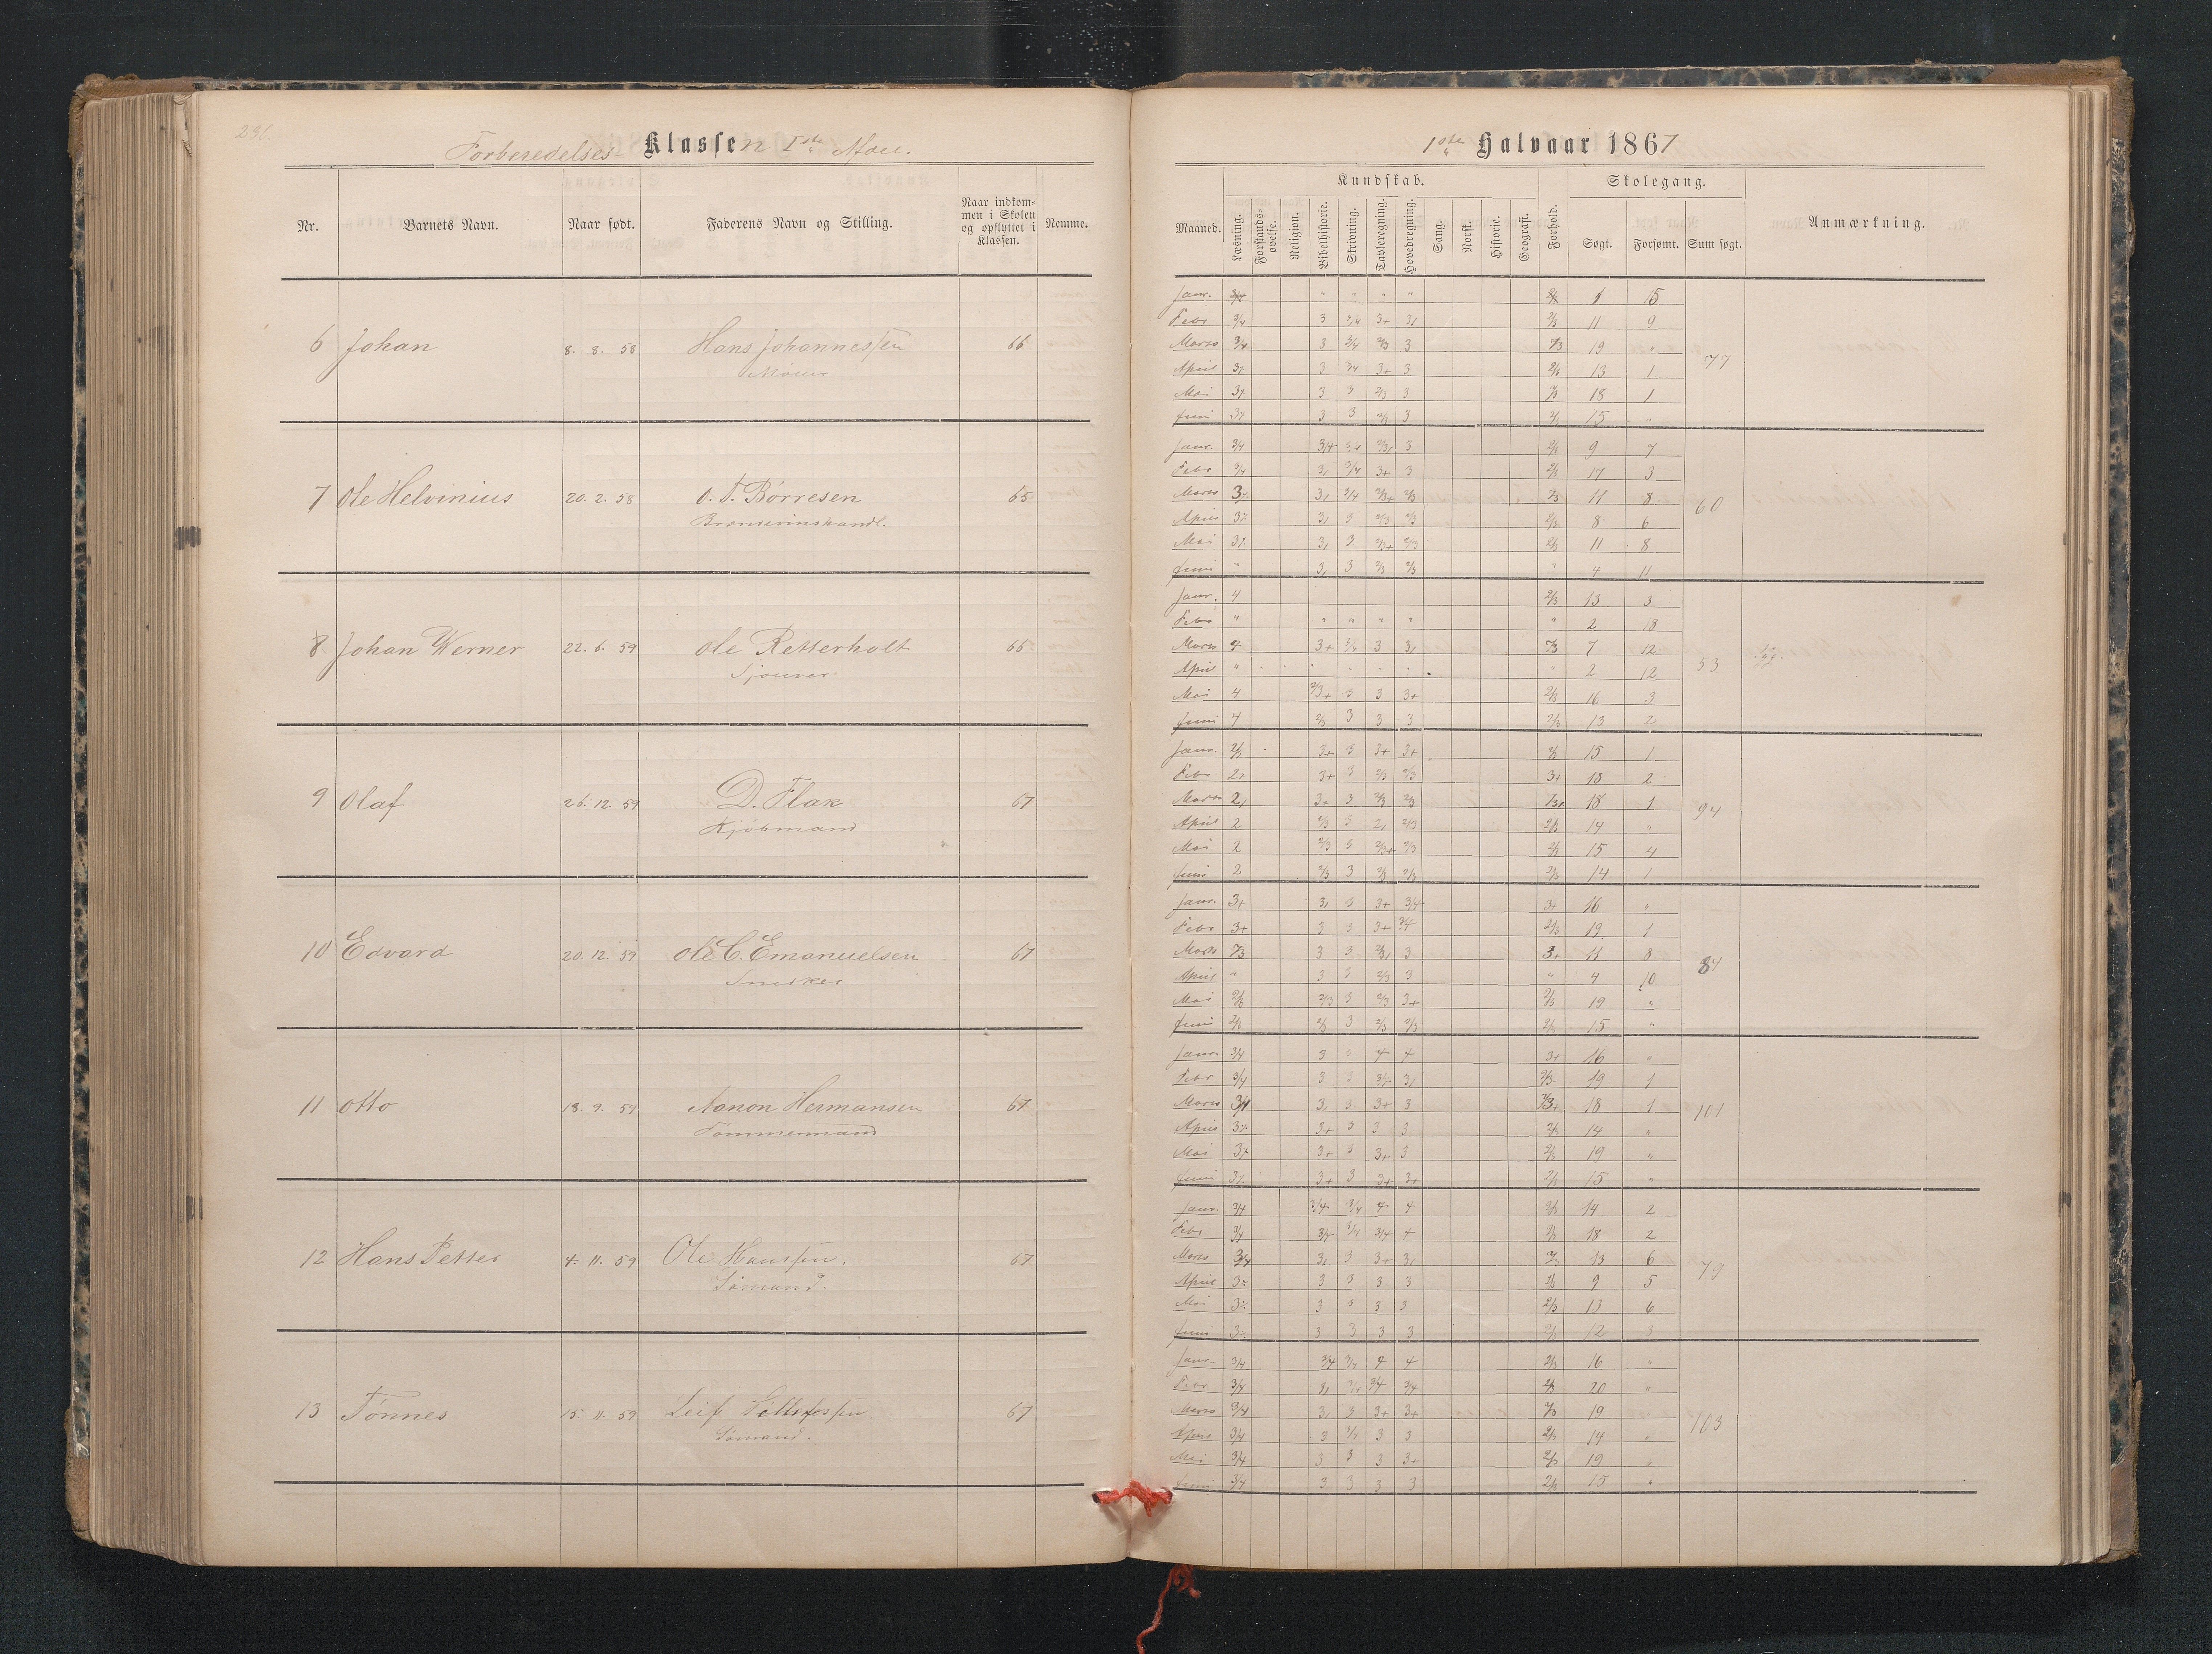 236
Forberedelses- Klassen 1ste Afdel.
Nr.
Barnets Navn.
Naar født.
Faderens Navn og Stilling.
Naar indkom-
men i Skolen
og opflyttet i
Klassen.
Nemme.
6 Johan 8. 8. 58 Hans Johannessen 66
7 Ole Helvinius 20. 2. 58 O. T. Børresen 65
Brændevinshandl.
8 Johan Werner 22. 6. 59 Ole Retterholt 66
Sjouer
9 Olaf 26. 12. 59 D. Flak 67
Kjøbmand
10 Edvard 20. 12. 59 Ole C. Emanuelsen 67
Snedker
11 Otto 18. 9. 59 Aanon Hermansen 67
Tømmermand
12 Hans Petter 4. 11. 59 Ole Hanssen 67
Sømand.
13 Tønnes 15. 11. 59 Leif 67
Sømand.
1ste Halvaar 1867
Maaned.
Kundskab.
Læsning.
Forstands-
øvelse.
Religion.
Bibelhistorie.
Skrivning.
Tavleregning.
Hovedregning.
Sang.
Norsk.
Historie.
Geografi.
Forhold.
Skolegang.
Søgt.
Forsømt.
Sum søgt.
Anmærkning.
Janr. 1 15
Febr 3/4 3 3/4 3+ 11 9
Marts 3/4 3 3/4 2/3 3 2/3 19 "
April 3 3/4 3+ 3 13 1
Mai 3 3 2/3 3 18 1
Juni 3 3 3 15 "
77
Janr. 3/4 9 7
Febr 3/4 3/4 3+ 3 17 3
Marts 3/4 2/3+ 2/3 2/3 11 8
April 3 2/3 2/3 2/3 8 6
Mai 3 2/3+ 2/3 11 8
Juni " 3 2/3 2/3 " 4 11
60
Janr. 4 2/3 13 3
Febr " " " " " " 2 18
Marts 4 3+ 3/4 3 2/3 7 12
April " 2 12
Mai 4 2/3+ 3 3 3+ 2/3 16 3
Juni 4 2/3 3 3 3 2/3 13 2
53
Janr. 2/3 3+ 3 3+ 3+ 15 1
Febr 3+ 3 2/3 2/3 3+ 18 2
Marts 3+ 3 2/3 2/3 18 1
April 2 2/3 3 2/3 2/3 14 "
Mai 2 2/3 3 2/3+ 2/3 15 4
Juni 2 2/3 3 2/3 2/3 2/3 14 1
94
Janr. 3+ 3 3+ 3/4 3+ 16 "
Febr 3+ 3 3 3+ 3/4 2/3 19 1
Marts 2/3 3 3 3 3+ 11 8
April " 3 3 2/3 3 " 4 10
Mai 2/3 2/3 3 2/3 3+ 2/3 19 "
Juni 2/3 2/3 3 2/3 2/3 2/3 15 "
84
Janr. 3/4 3 3 4 4 3+ 16 "
Febr 3/4 3 3 2/3 19 1
Marts 3/4 3 3+ 3 2/3+ 18 1
April 3+ 3 3 3 2/3 14 "
Mai 3+ 3 3+ 3 2/3 19 "
Juni 3+ 3 3+ 3+ 2/3 15 "
101
Janr. 3/4 3/4 3/4 4 4 2/3 14 2
Febr 3/4 3/4 3/4 3/4 4 18 2
Marts 3/4 3 3+ 13 6
April 3 3 3 3 2/3 9 5
Mai 3 3 3 3 2/3 13 6
Juni 3 3 3 3 2/3 12 3
79
Janr. 3/4 3/4 3/4 4 4 2/3 16 "
Febr 3/4 3/4 3/4 3/4 2/3 20 "
Marts 3/4 3 3+ 3+ 2/3 19 "
April 3/4 3 3 3 2/3 14 "
Mai 3/4 3 3 3 3+ 2/3 19 "
Juni 3/4 3 3 3 3 2/3 15 "
103